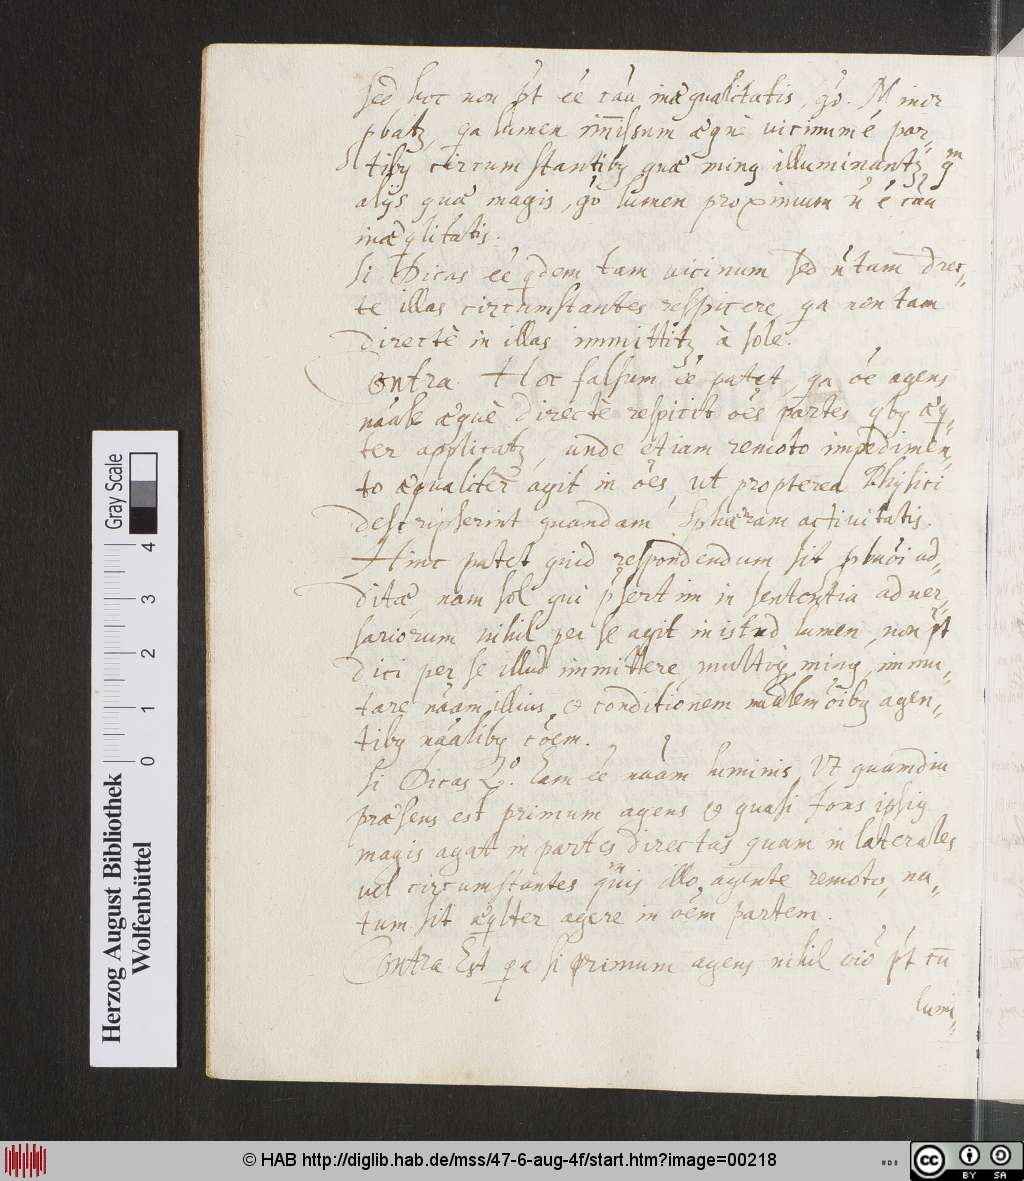 sed hoc non põt eẽ cãu inæqualitatis, gõ. Minor
pbatz, qa lumen im̃issum æquè vicinum é par=
tiby circumstantiby quæ ming illuminantz qm
alijs quæ magis, gõ lumen proximum ñ é cãu
inæqlitatis.
Si Dicas eẽ qdem tam vicinum sed ñ tam direc=
te illas circumstantes respicere, qa non tam
directè in illas immittitz à sole.
Contra. Hoc falsum eẽ patet, qa oẽ agens
nãale æquè directè respicit oẽs partes qby æq=
ter applicatz, unde etiam remoto impedimen=
to æqualiter agit in oẽs, ut propterea Physici
descripserint quandam Sphæram actiuitatis.
Hinc patet quid respondendum sit pbaõi ad=
ditæ, nam sol qui psertim in sententia aduer=
sariorum nihil per se agit in istud lumen, non põt
dici per se illud immittere, multoq ming, immu=
tare nãam illius, & conditionem oĩby agen=
tiby nãaliby cõem.
Si Dicas 2º. Eam eẽ nãam luminis, Ut quamdiu
præsens est primum agens & quasi fons ipsig
magis agat in partes directas quam in laterales
vel circumstantes qmis illo agente remoto, na=
tum sit æqlter agere in oẽm partem.
Contra Est qa si primum agens nihil oiõ põt cũ
lumi=
Gray Scale
0 1 2 3 4
Herzog August Bibliothek
Wolfenbüttel
© HAB http://diglib.hab.de/mss/47-6-aug-4f/start.htm?image=00218
cc BY SA